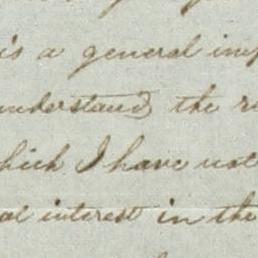 is a general imp
understand, the r
which I have not
al interest in the